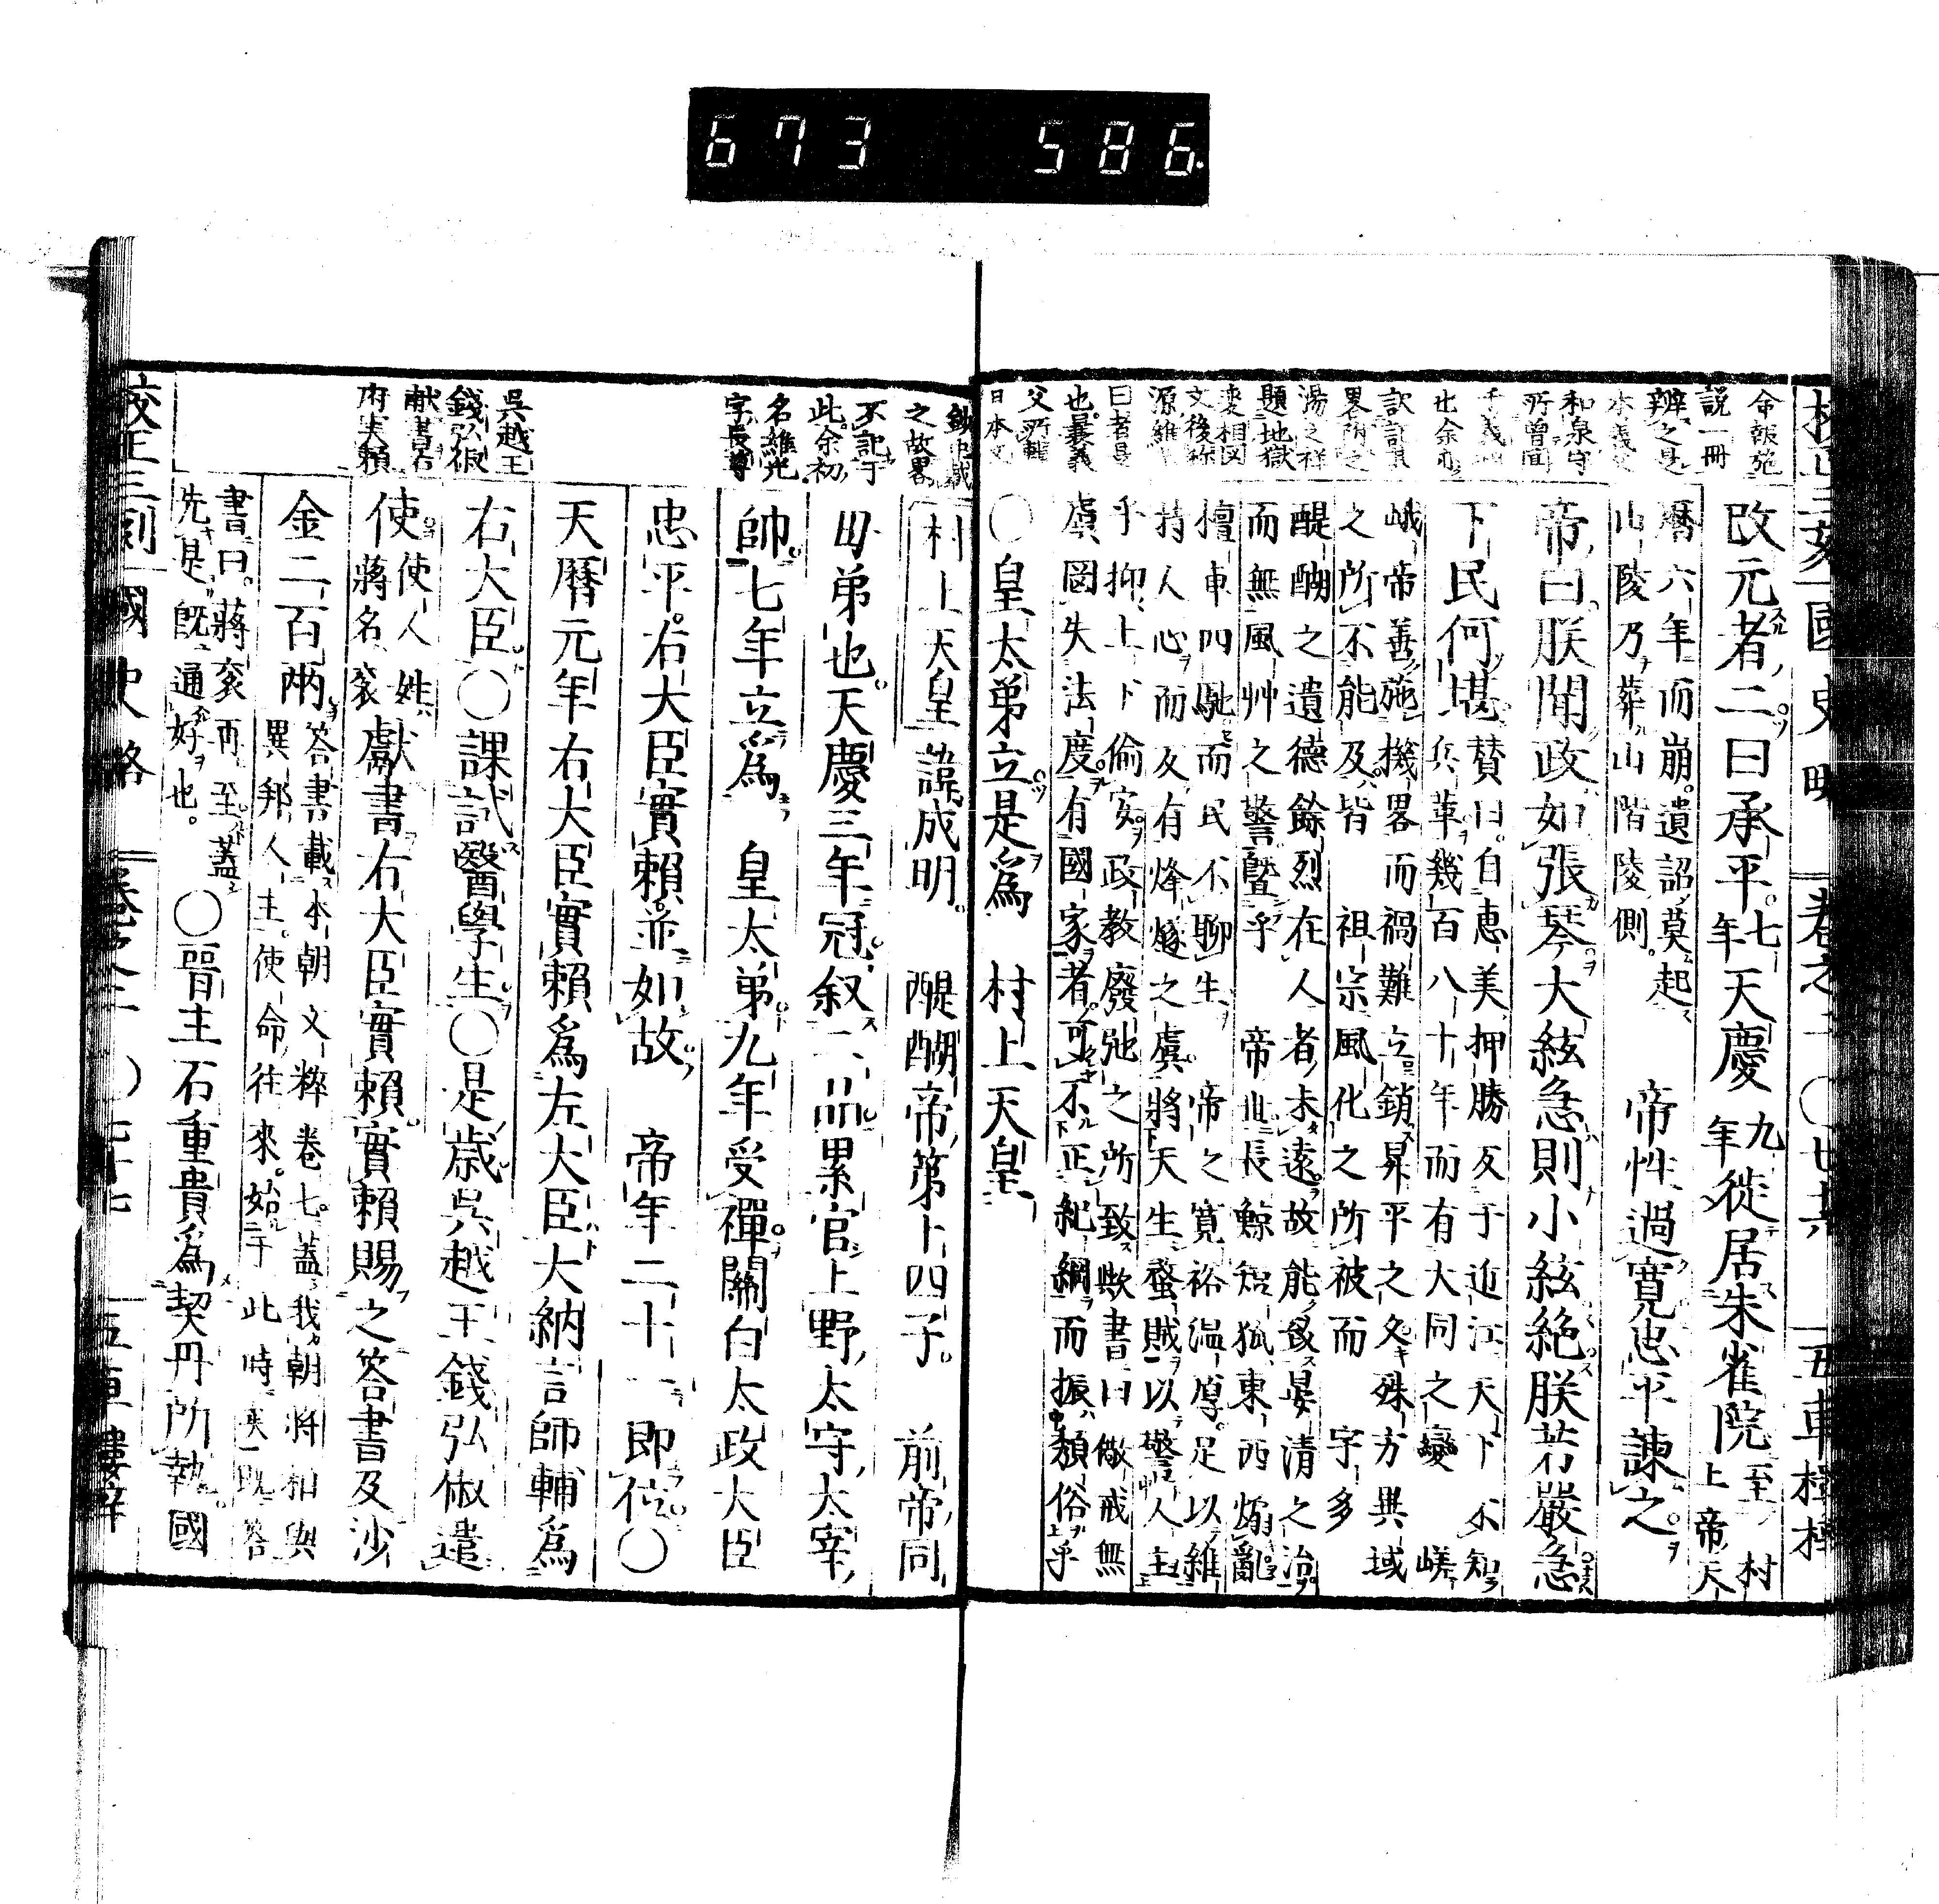 673 586.
國史略 卷之二 〇七十六 五車樓梓
改元者二曰承平七年天慶九年徙居朱雀院至村上帝天
曆六年而崩遺詔莫起
山陵乃葬山階陵側 帝性過寬忠平諫之
帝曰朕聞政如張琴大絃急則小絃絕朕若嚴急
下民何堪 贊曰自惠美押勝反于近江天下不知
兵革幾百八十年而有大同之變 嵯
峨帝善施機畧而禍難立銷昇平之久殊方異域
之所不能及皆 祖宗風化之所被而 宇多
醍醐之遺德餘烈在人者未遠故能致晏清之治
而無風艸之警曁乎 帝世長鯨短狐東西煽亂
檀車四馳而民不聊生 帝之寛裕溫厚足以維
持人心而又有烽燧之虞將天生蟊賊以警人主
乎抑上下偷安政教廢弛之所致歟書曰儆戒無
虞罔失法度有國家者可不正紀綱而振頽俗乎
〇皇太弟立是爲 村上天皇
命報施
說一冊
辨之是
和泉守
所曾聞
湯之祥
題地獄
變相図
文後稱
源維
曰者是
也曩義
父所輯
日本文
之故畧
不記于
此余初
名維光
字長尊
村上天皇諱成明 醍醐帝第十四子 前帝同
母弟也天慶三年冠叙三品累官上野太守太宰
帥七年立爲 皇太弟九年受禪關白太政大臣
忠平右大臣實賴並如故 帝年二十一即位〇
天曆元年右大臣實賴爲左大臣大納言師輔爲
右大臣〇課試醫學生〇是歲呉越王錢弘俶遣
使使人姓蔣名袞獻書右大臣實賴實賴賜之答書及沙
金二百兩答書載本朝文粹卷七蓋我朝將相與
異邦人主使命往來始于此時矣
書曰蔣袞再至蓋
先是既通好也 〇晉主石重貴爲契丹所執國
呉越王
錢弘俶
獻書右
府実賴
校正三刻 國史略 五車樓梓